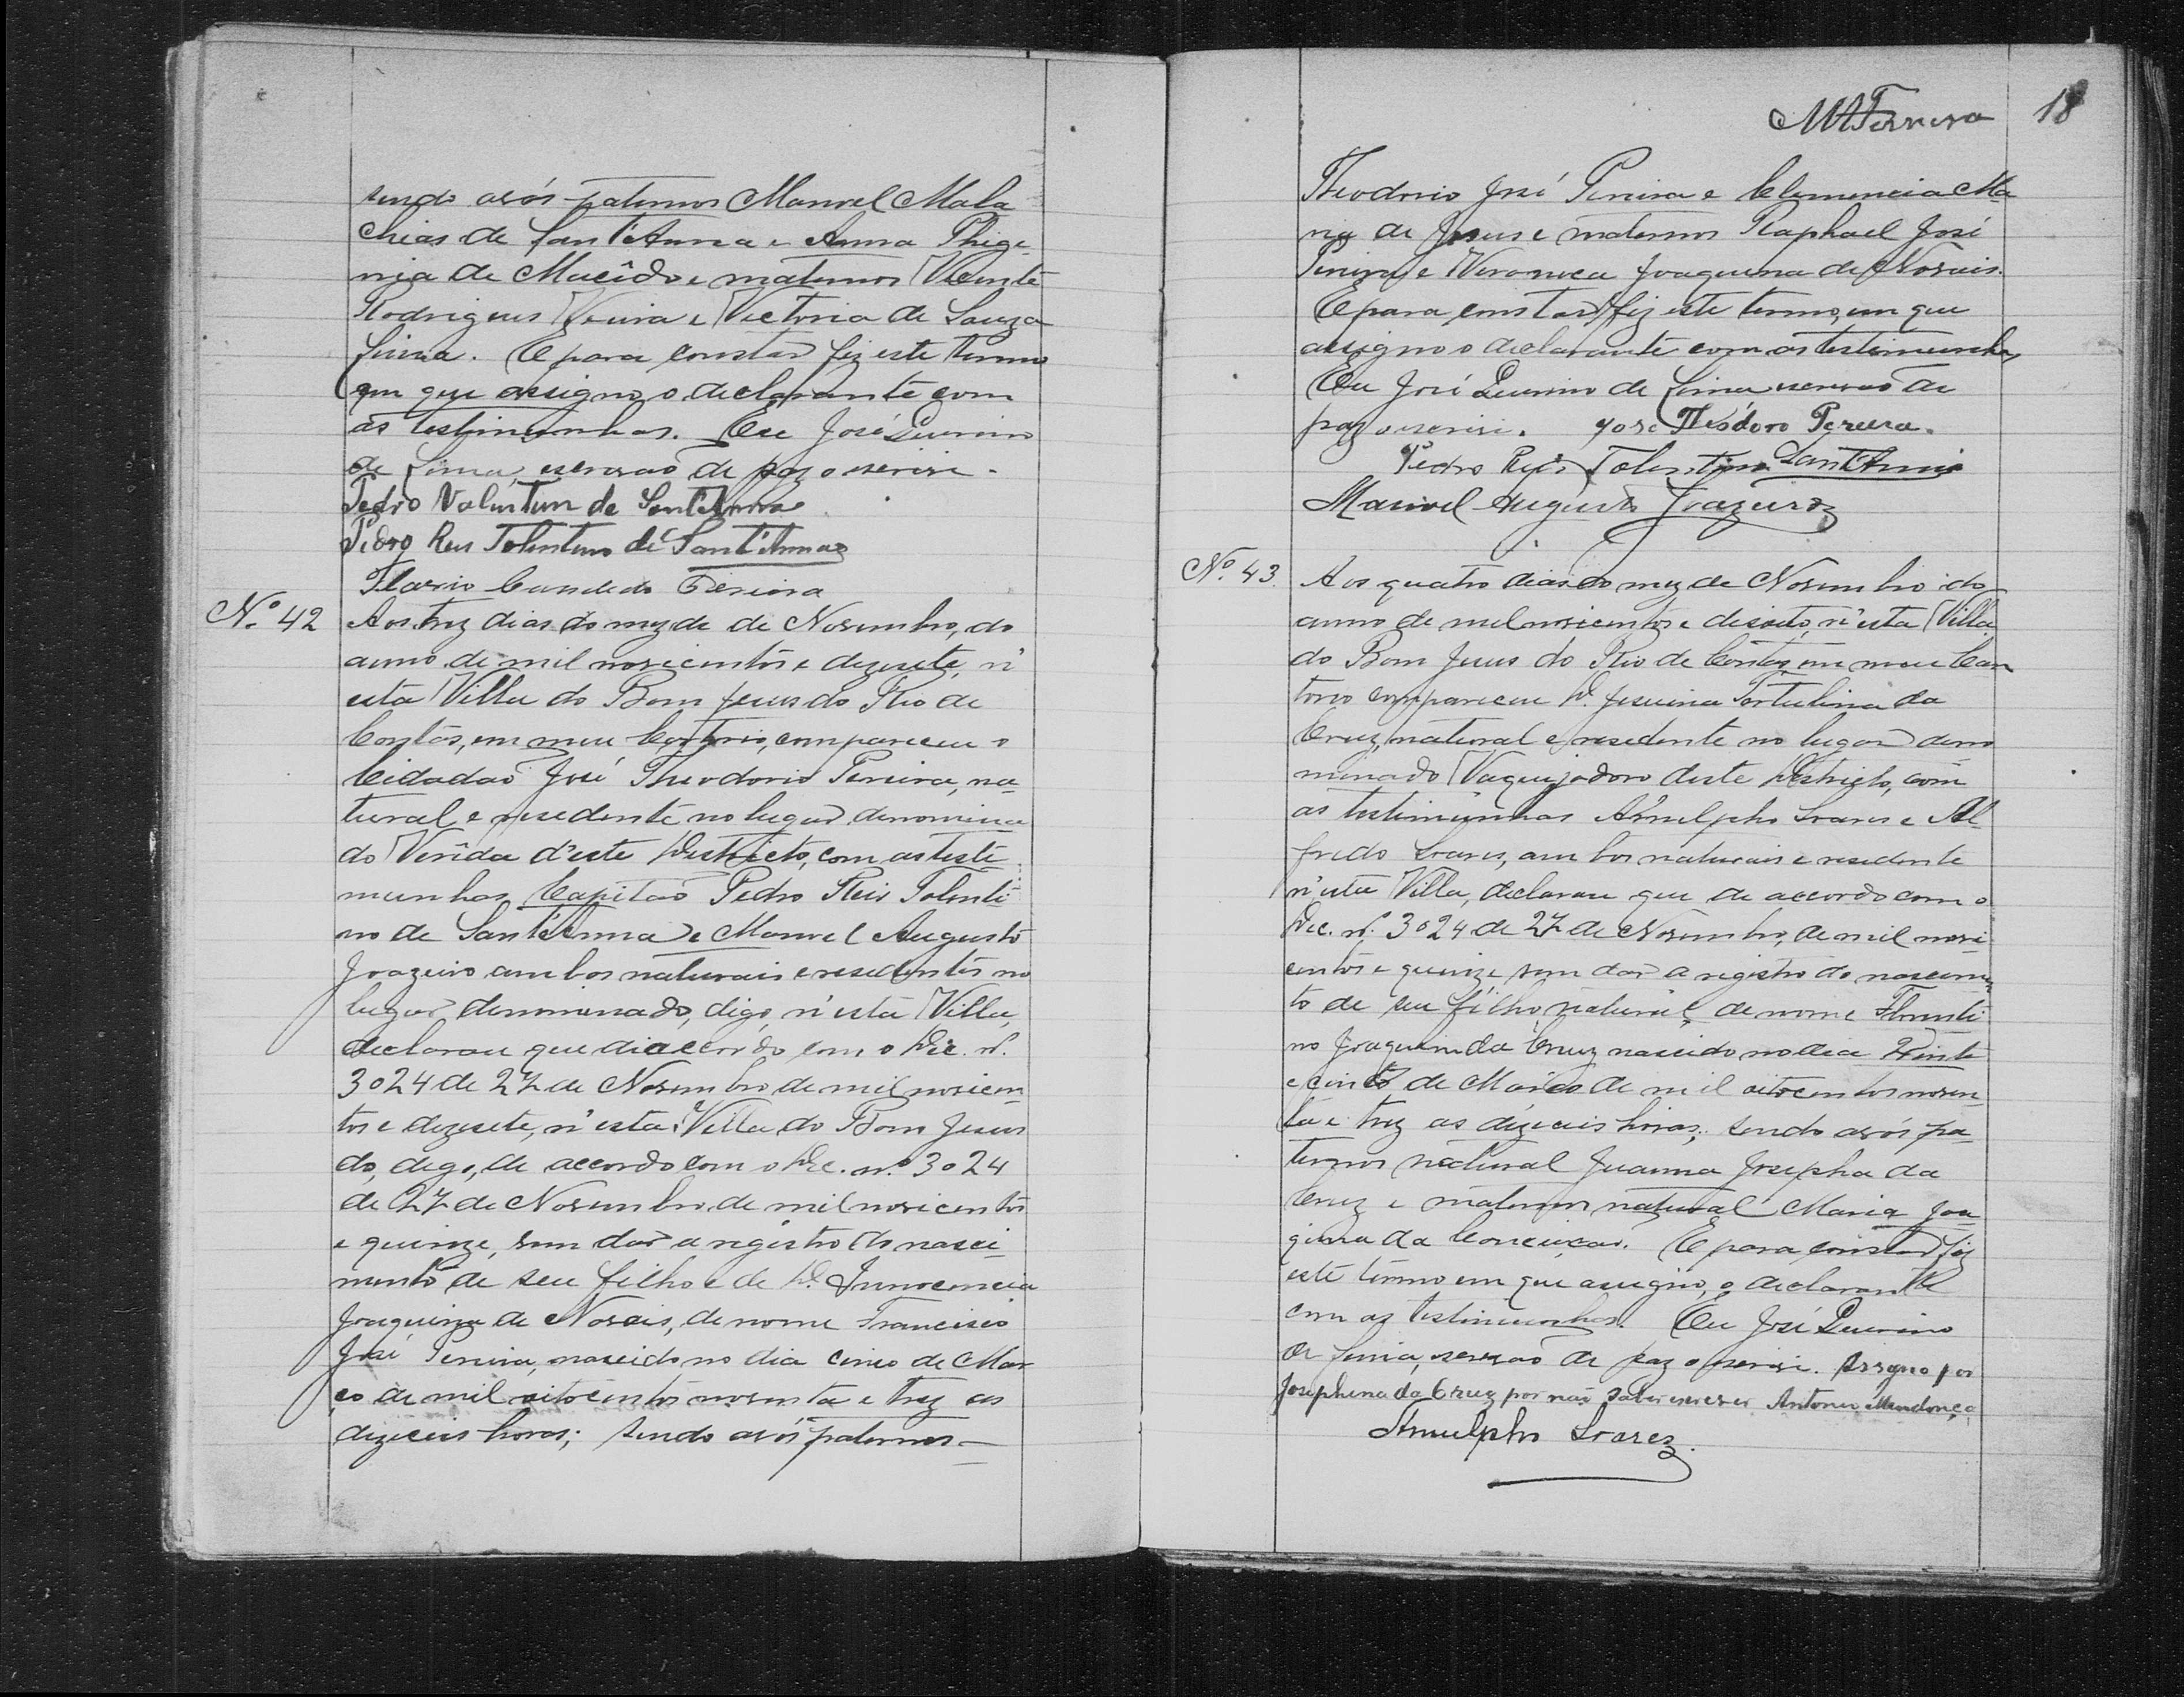 sendo avós paternos Manoel Mala
chias de Sant'Anna e Anna Phige
nia de Macêdo e maternos Vicente
Rodrigues Vieira e Victoria de Souza
Lima. E para constar fiz este termo
em que assigno o declarante com
as testimunhas. Eu José Quirino
de Lima, escrivão de paz o escrivi.
Pedro Valentim de Sant'Anna
Pedro Reis Tolentino de Sant'Anna
Flavio Candido Pereira
Nº 42
Aos trez dias do mez de de Novembro, do
anno de mil novicentos e dezesete, n'
esta Villa do Bom Jesus do Rio de
Contas, em meu Cartorio, compareceu o
Cidadão José Theodorio Pereira, na
tural e resedente no lugar denomina
do Verêda d'este Districto, com as teste
munhas Capitão Pedro Reis Tolenti
no de Sant'Anna e Manoel Augusto
Joazeiro ambos naturais e resedentes no
lugar denominado, digo, n'esta Villa,
declarou que di accordo com o Dec. nº.
3024 de 27 de Novembro de mil novicen
tos e dezesete, n'esta Villa do Bom Jesus
do, digo, de accordo com o Dec. nº 3024
de 27 de Novembro de mil novicentos
e quinze, vem dar a registro do nasci
mento de seu filho e de D. Innocencia
Joaquina de Novais, de nome Francisco
José Pereira, nascido no dia cinco de Mar
ço de mil oitocentos noventa e trez as
dizeceis horas; sendo avós paternos
MAFerrera 18
Theodorio José Pereira e Clemencia Ma
ria de Jesus e maternos Raphael José
Pereira e Veronica Joaquina de Novais.
E para constar fiz este termo, em que
assigno o declarante com as testimunhas
Eu José Quirino de Lima escrivão de
paz o escrivi. José Theódoro Pereira.
Pedro Reis Tolentino Sant'Anna
Manoel Augusto Joazeiro
Nº 43.
Aos quatro dias do mez de Novembro do
anno de mil novicentos e desoito, n'esta Villa
do Bom Jesus do Rio de Contas, em meu Car
torio compareceu D. Jesuina da
Cruz, natural e resedente no lugar deno
minado Vaquejadoro deste Districto, com
as testimunhas Arnulpho Soares e Al
fredo Soares, ambos naturais e resedente
n'esta Villa, declarou que de accordo com o
Dec. nº. 3024 de 27 de Novembro, de mil novi
centos e quinze vem dar a registro do nascimen
to de seu filho natural, de nome Florenti
no Joaquim da Cruz nascido no dia Vinte
e cinco de Março de mil oitocentos noven
ta e trez as dizeceis horas; sendo avós pa
ternos natural Juanna Josepha da
Cruz e maternos natural Maria Joa
quina da Conceição. E para constar fiz
este termo em que assigno, o declarante
com as testimunhas. Eu José Quirino
de Lima, escrivão de paz o escrivi. Assigno por
Josephina da Cruz por não saber escrever Antonio Mendonça
Arnulpho Soares.